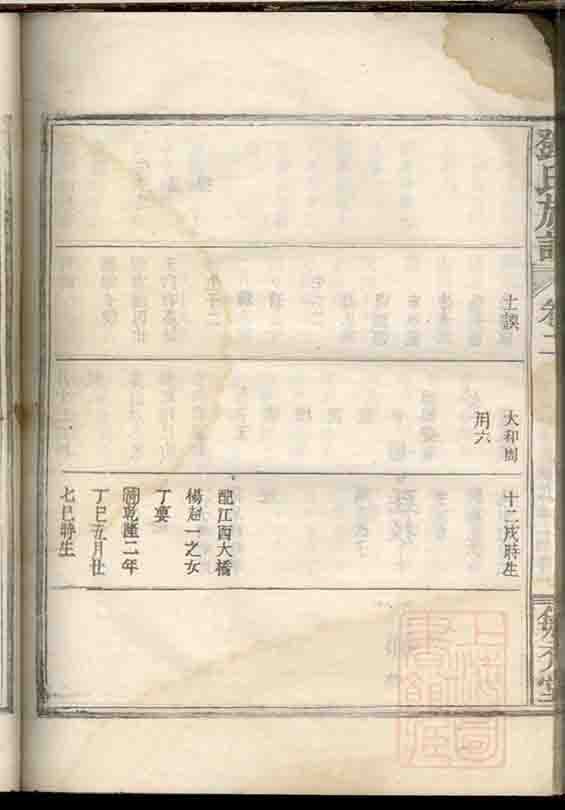 鄧氏族譜
卷二
士謨
大和間
用六
十二戌時生
配江西大橋
楊超一之女
丁婁
乾隆二年
丁巳五月廿
七巳時生